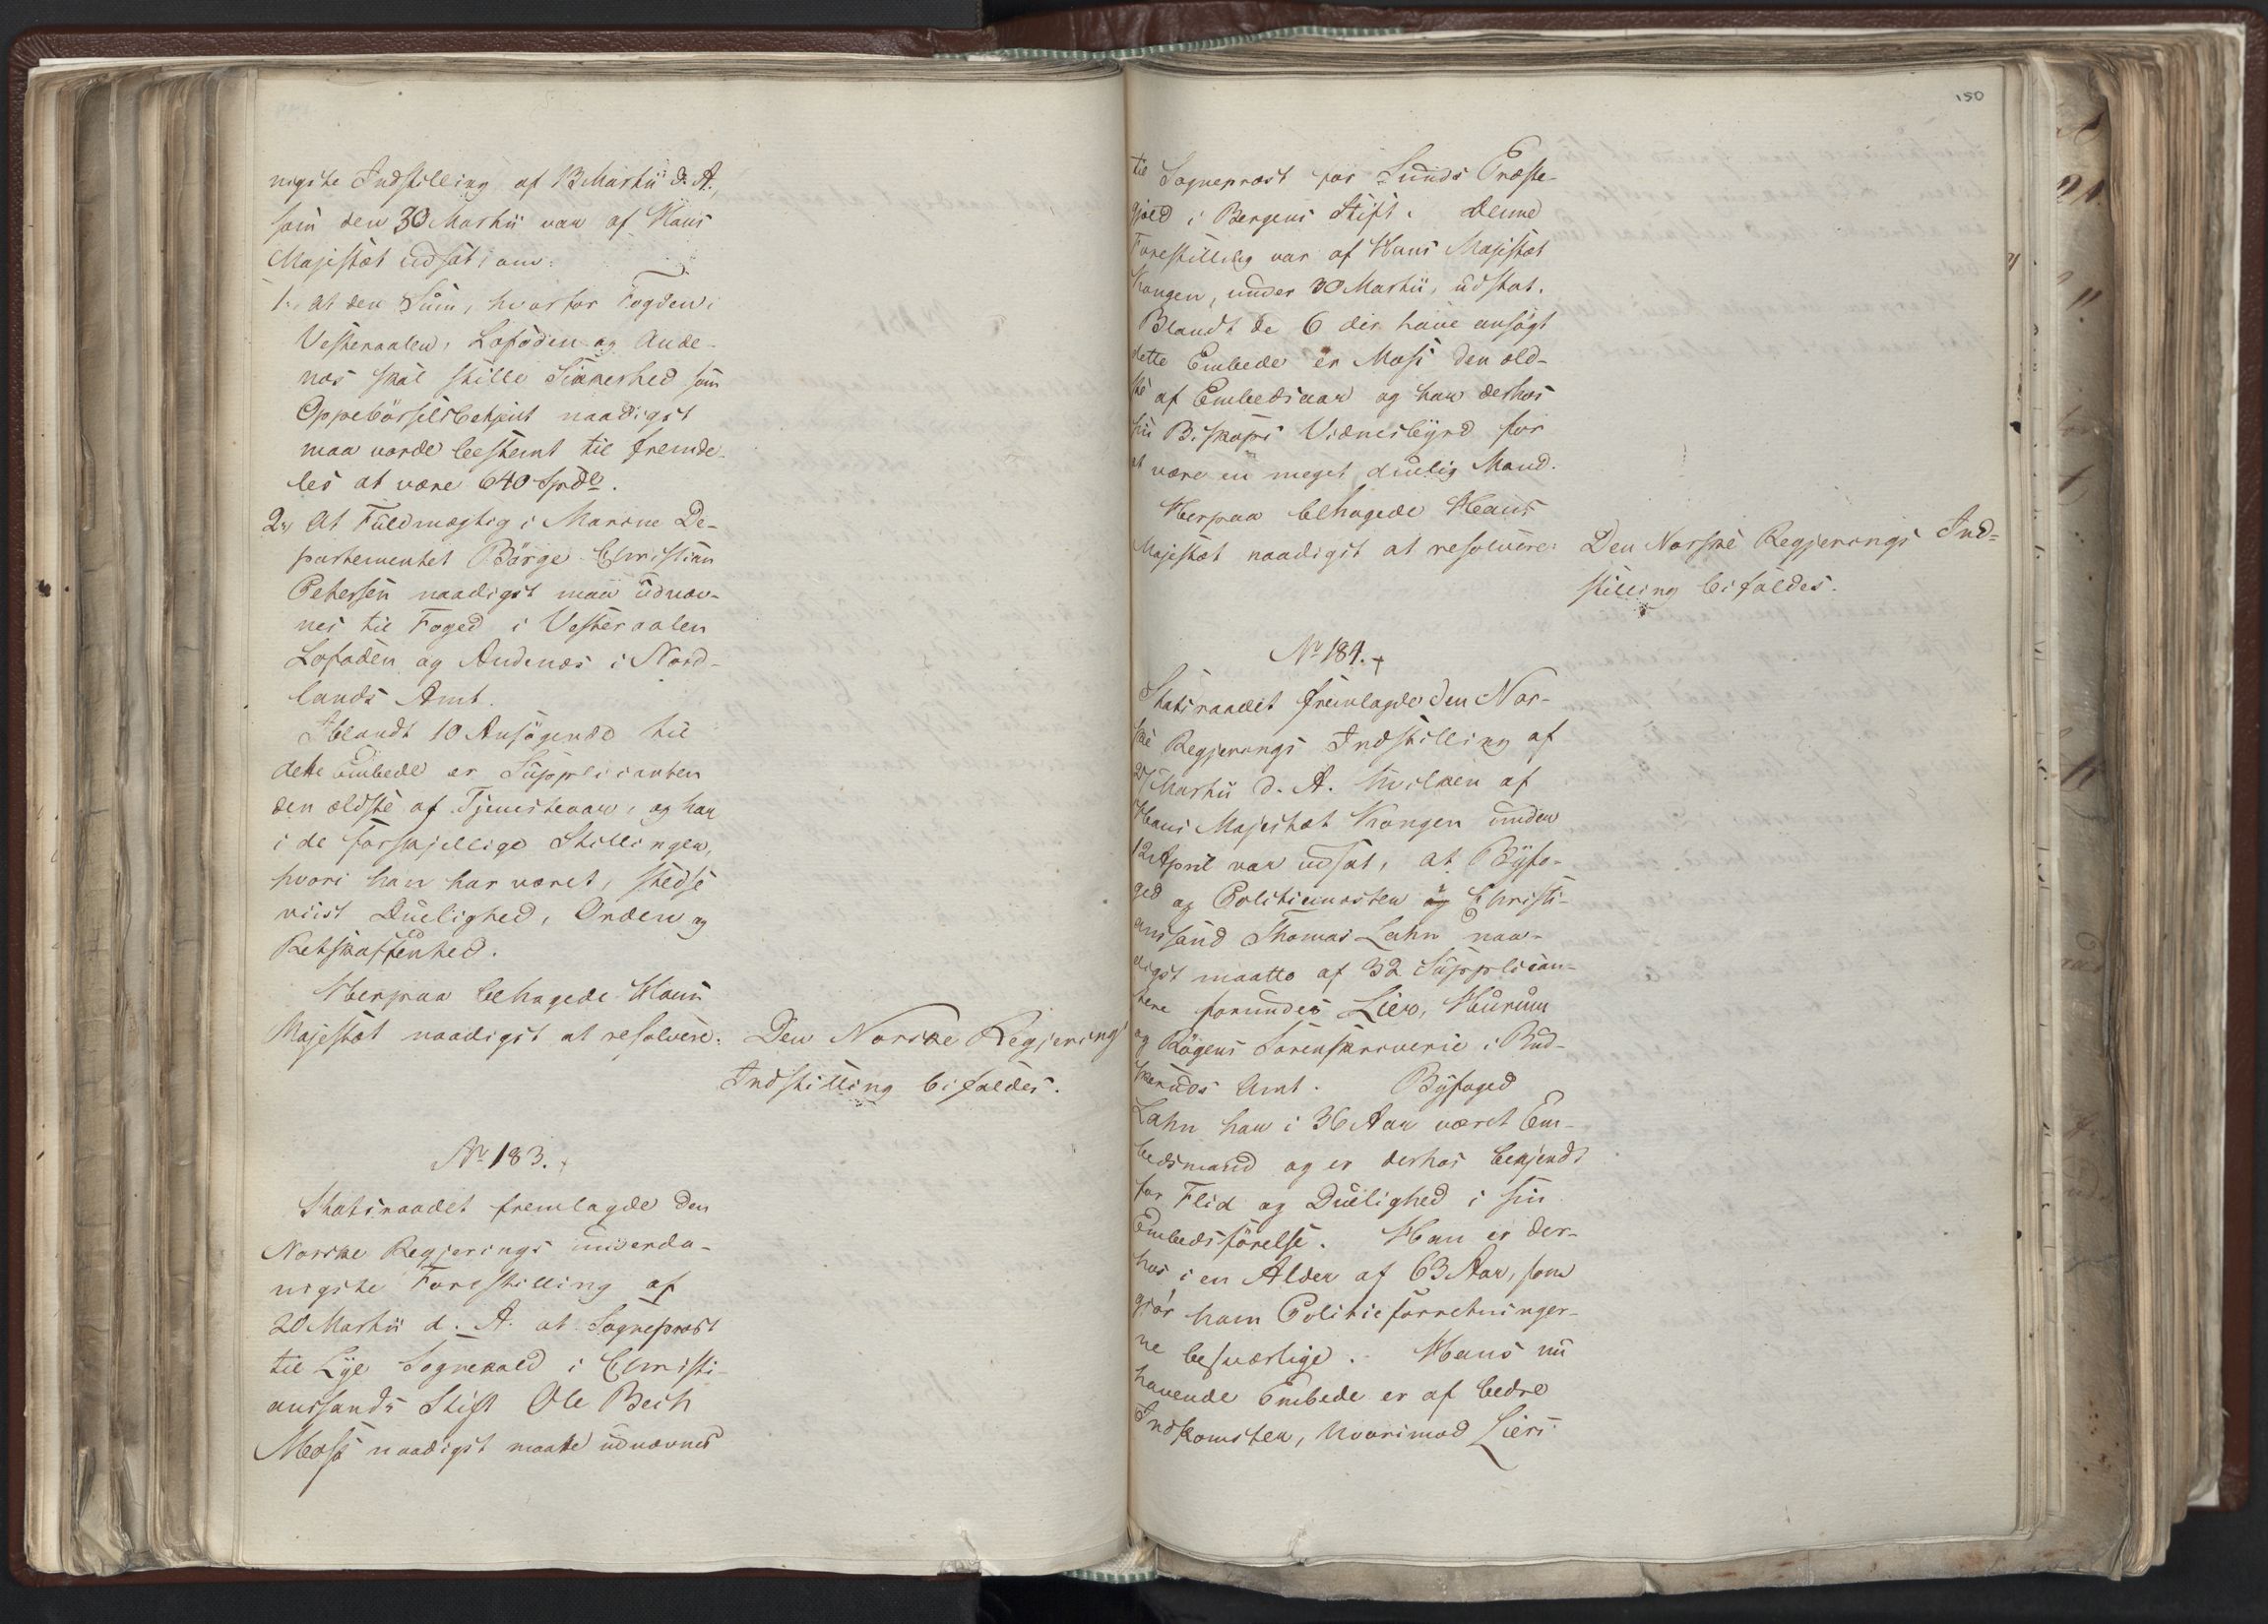 nigste Indstilling af 13 Martii d. A.,
som den 30 Martii var af Hans
Majestæt udsat; om:
1., at den Sum, hvorfor Fogden i
Vesteraalen, Lofoden og Ande-
næs skal stille Sikkerhed som
Oppebörselsbetjent naadigst
maa vorde bestemt til fremde-
les at være 640 Spd.
2., At Fuldmægtig i Marine De-
partementet Börge Christian
Petersen naadigst maa udnæv-
nes til Foged i Vesteraalen
Lofoden og Andenæs i Nord-
lands Amt.
Iblandt 10 Ansögende til
dette Embede er Supplicanten
den ældste af Tjenesteaar, og har
i de forskjellige Stillinger,
hvori han har været, stedse
viist Duelighed, Orden og
Retskaffenhed.
Herpaa behagede Hans
Majestæt naadigst at resolvere:
Den Norske Regjerings
Indstilling bifaldes.
No 183.
Statsraadet fremlagde den
Norske Regjerings underda-
nigste Forestilling af
20 Martii d. A. at Sognepræst
til Lye Sognekald i Christi-
anssands Stift Ole Bech
Moss naadigst maatte udnævnes
150
til Sognepræst for Sunds Præste-
gjæld i Bergens Stift. Denne
Forestilling var af Hans Majestæt
Kongen, under 30 Martii, udsat.
Blandt de 6 der have ansögt
dette Embede er Moss den æld-
ste af Embedsaar og har derhos
sin Biskops Vidnesbyrd for
at være en meget duelig Mand.
Herpaa behagede Hans
Majestæt naadigst at resolvere:
Den Norske Regjerings Ind-
stilling bifaldes.
No 184.
Statsraadet fremlagde den Nor-
ske Regjerings Indstilling af
27 Martii d. A. hvilken af
Hans Majestæt Kongen under
12 April var udsat, at Byfo-
ged og Politiemester i Christi-
anssand Thomas Lahn naa-
digst maatte af 32 Supplican-
tere forundes Lier, Hurum
og Rögens Sorenskriverie i Bud-
skeruds Amt. Byfoged
Lahn har i 36 Aar været Em-
bedsmand og er derhos bekjendt
for Flid og Duelighed i sin
Embedsförelse. Han er der-
hos i en Alder af 63 Aar, som
gjör ham Politieforretninger-
ne besværlige. Hans nu
havende Embede er af bedre
Indkomster, hvorimod Liers